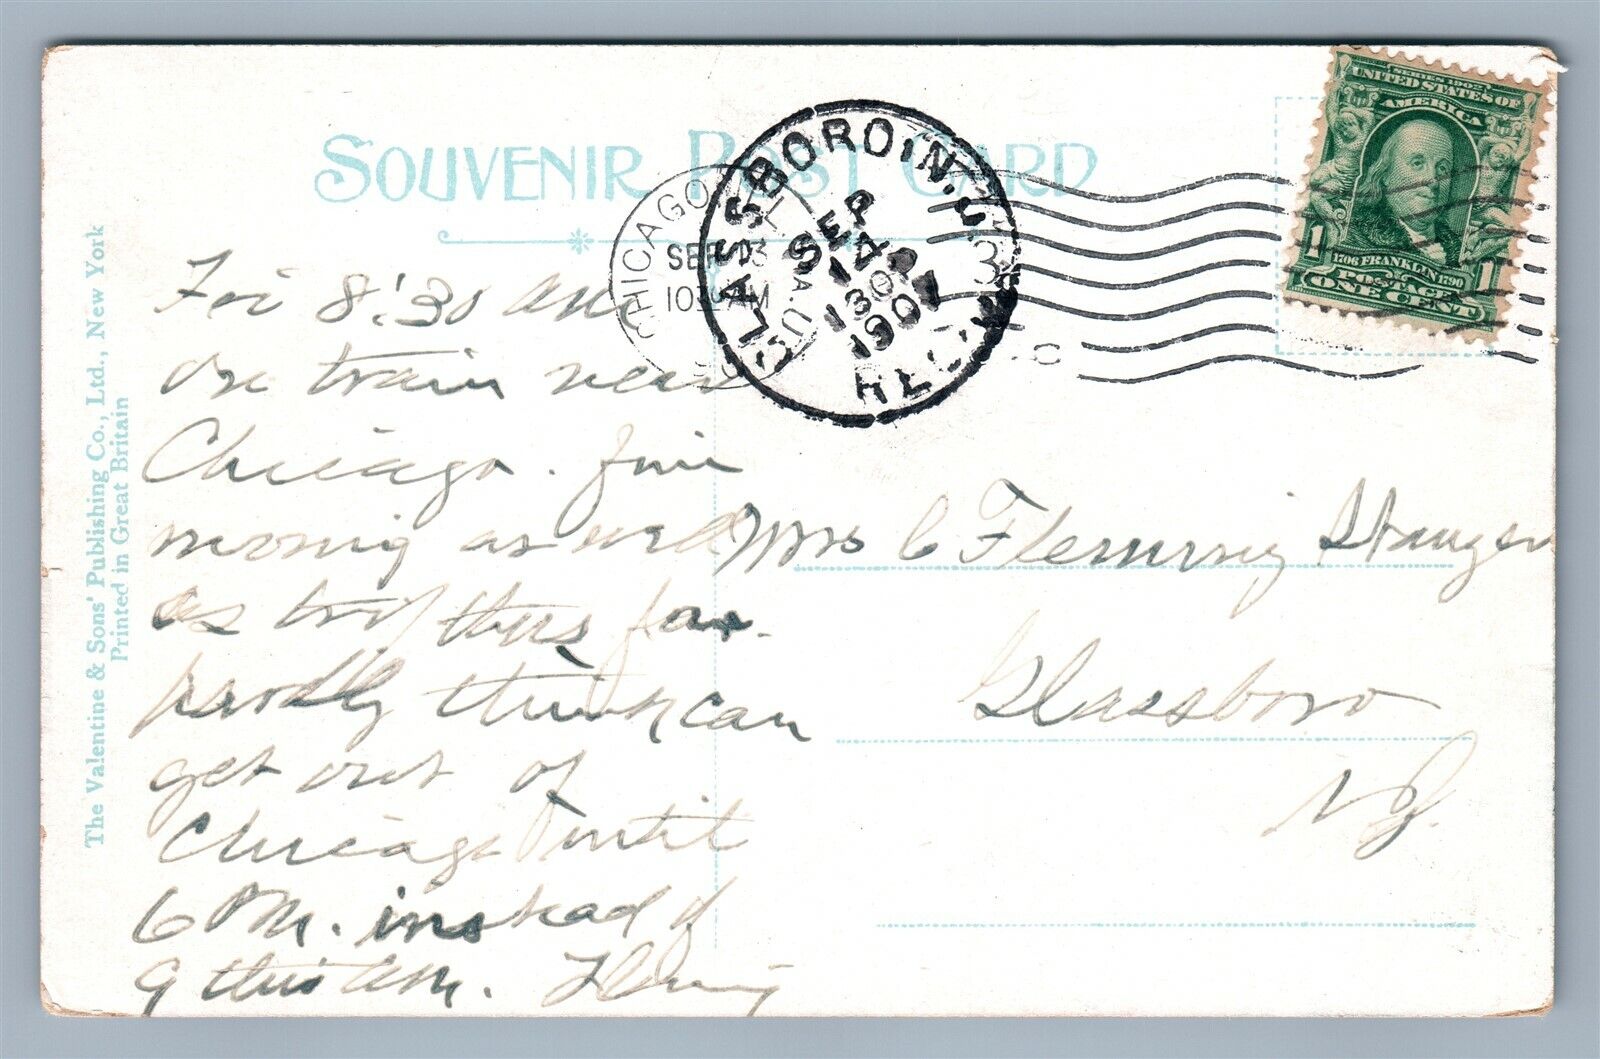 SOUVENIR POST CARD
The Valentine & Sons' Publishing Co., Ltd., New York
Printed in Great Britain
CHICAGO
SEP 13
1030 AM
GLASSBORO, N.J.
SEP
14
130P
1907
REC'D
SERIES 1902
UNITED STATES OF
AMERICA
1 1706 FRANKLIN 1790 1
POSTAGE
ONE CENT
Fri 8:30 AM
On train near
Chicago. fine
morning as well
as trip thus far.
think can
get out of
Chicago until
6 PM. instead of
9 this AM. Fleming
Mrs C Fleming Stanger
Glassboro
NJ.